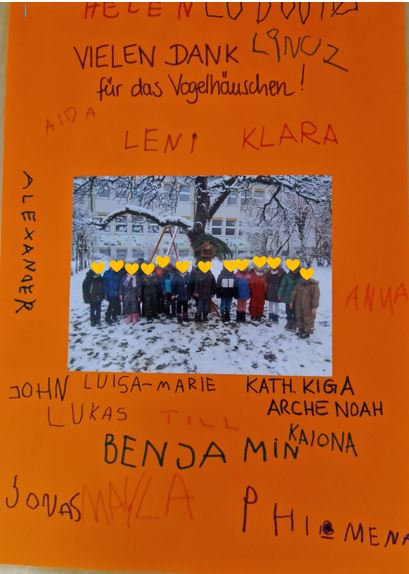 HELEN LUDWIG
VIELEN DANK LINUZ
für das Vogelhäuschen!
AIDA
LENI KLARA
ALEXANDER
ANNA
JOHN LUISA-MARIE KATH. KIGA
LUKAS TILL ARCHE NOAH
BENJAMIN KAIONA
JONAS MAYLA PHILOMENA